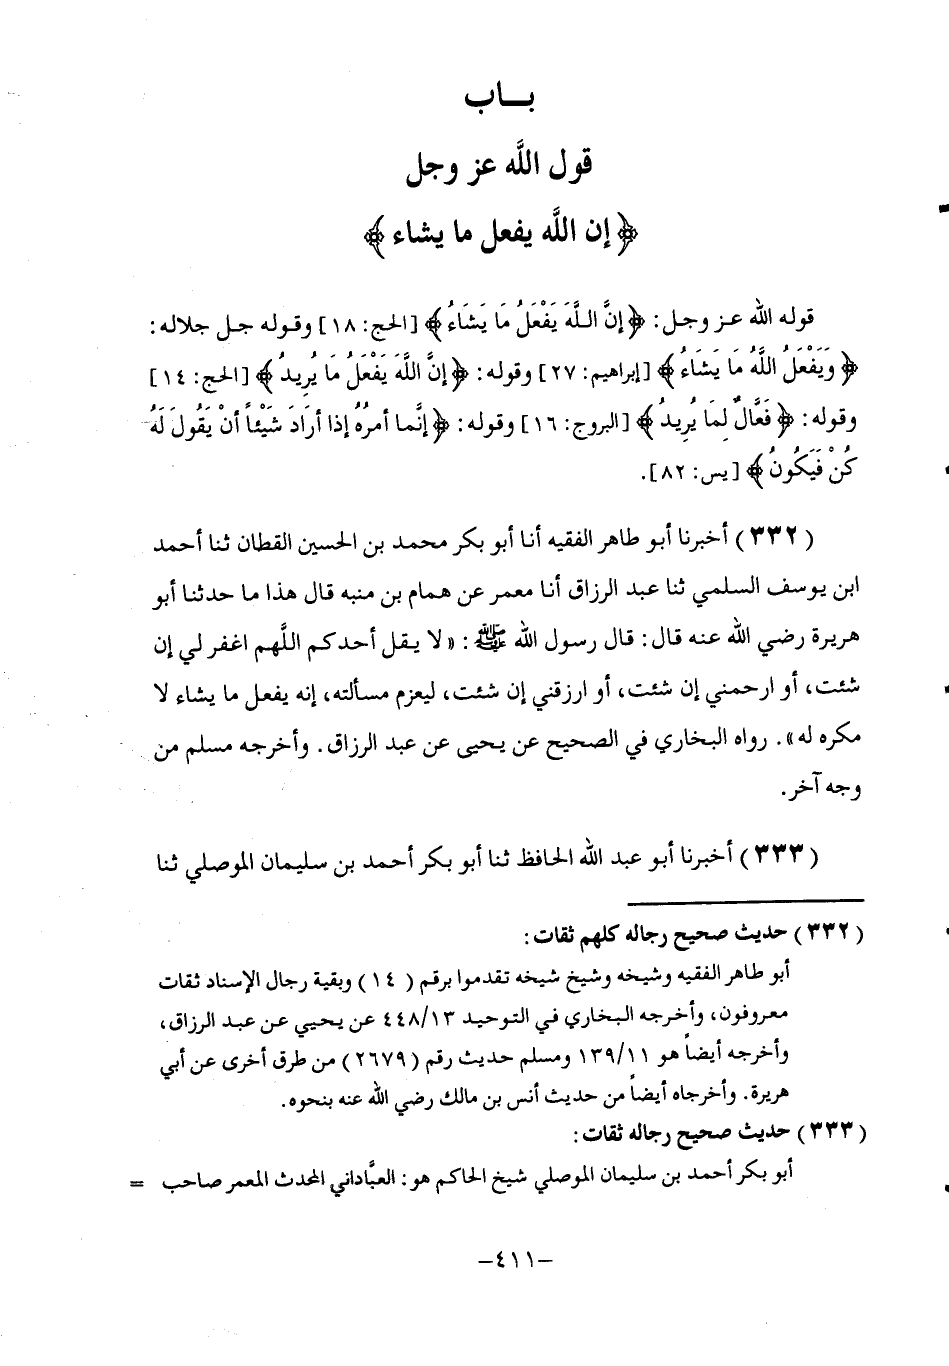 بـــاب
قول اللَّه عز وجل
﴿ إن اللَّه يفعل ما يشاء ﴾
قوله الله عـز وجـل: ﴿ إِنَّ اللَّـهَ يَفْعَلُ مَا يَشَاءُ ﴾ [الحج: ١٨] وقـوله جـل جلاله:
﴿ وَيَفْعَلُ اللَّهُ مَا يَشَاءُ ﴾ [إبراهيم: ٢٧] وقوله: ﴿ إِنَّ اللَّهَ يَفْعَلُ مَا يُرِيدُ ﴾ [الحج: ١٤]
وقوله: ﴿ فَعَّالٌ لِمَا يُرِيدُ ﴾ [البروج: ١٦] وقوله: ﴿ إنَّما أمرُهُ إذا أرَادَ شَيْئاً أنْ يَقُولَ لَهُ
كُنْ فَيَكُونُ ﴾ [يس: ٨٢].
( ٣٣٢ ) أخبرنا أبو طاهر الفقيه أنا أبو بكر محمد بن الحسين القطان ثنا أحمد
ابن يوسف السلمي ثنا عبد الرزاق أنا معمر عن همام بن منبه قال هذا ما حدثنا أبو
هريرة رضي الله عنه قال: قال رسول الله ﷺ: « لا يقل أحدكم اللَّهم اغفر لي إن
شئت، أو ارحمني إن شئت، أو ارزقني إن شئت، ليعزم مسألته، إنه يفعل ما يشاء لا
مكره له ». رواه البخاري في الصحيح عن يحيى عن عبد الرزاق. وأخرجه مسلم من
وجه آخر.
( ٣٣٣ ) أخبرنا أبو عبد الله الحافظ ثنا أبو بكر أحمد بن سليمان الموصلي ثنا
( ٣٣٢ ) حديث صحيح رجاله كلهم ثقات:
أبو طاهر الفقيه وشيخه وشيخ شيخه تقدموا برقم ( ١٤ ) وبقية رجال الإسناد ثقات
معروفون، وأخرجه البخاري في التوحيد ٤٤٨/١٣ عن يحيي عن عبد الرزاق،
وأخرجه أيضاً هو ١٣٩/١١ ومسلم حديث رقم ( ٢٦٧٩ ) من طرق أخرى عن أبي
هريرة. وأخرجاه أيضاً من حديث أنس بن مالك رضي الله عنه بنحوه.
( ٣٣٣ ) حديث صحيح رجاله ثقات:
أبو بكر أحمد بن سليمان الموصلي شيخ الحاكم هو: العبَّاداني المحدث المعمر صاحب =
–٤١١–